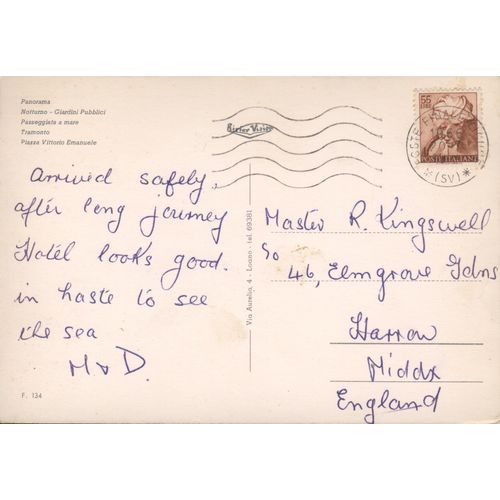 Panorama
Notturno - Giardini Pubblici
Passeggiata a mare
Tramonto
Piazza Vittorio Emanuele
Arrived safely,
after long journey
Hotel looks good.
in haste to see
the sea
M & D.
F. 134
Via Aurelia 4 - Loano - tel. 69381
55
POSTE ITALIANE
(SV)
Master R. Kingswell
46, Elmgrove Gdns
Harrow
Middx
England